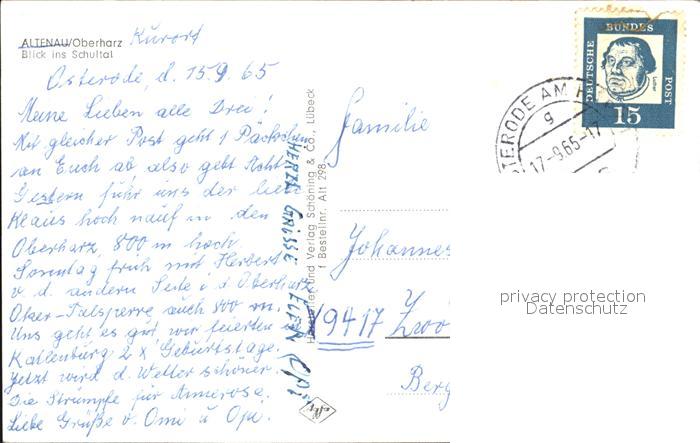 ALTENAU/Oberharz
Blick ins Schultal
Kurort
Osterode, d. 15.9.65
Meine Lieben alle Drei!
Mit gleicher Post geht 1 Päckchen
an Euch ab also gebt Acht
Gestern fuhr uns der liebe
Klaus hoch nauf in den
Oberharz, 800 m hoch.
Sonntag früh mit Herbert
v. d. andern Seite i. d. Oberharz
Oker-Talsperre auch 800 m.
Uns geht es gut wir feierten in
Katlenburg 2 x Geburtstage.
Jetzt wird d. Wetter schöner.
Die Strümpfe für Annerose.
Liebe Grüße v. Omi u Opa.
HERZL GRÜSSE
Hersteller und Verlag Schöning & Co., Lübeck
1 Bestellnr. Alt 298
Familie
Johannes
9417 Zwö
Berg
DEUTSCHE BUNDES POST
Luther
15
OSTERODE AM H
g
17-9.65-17
privacy protection
Datenschutz